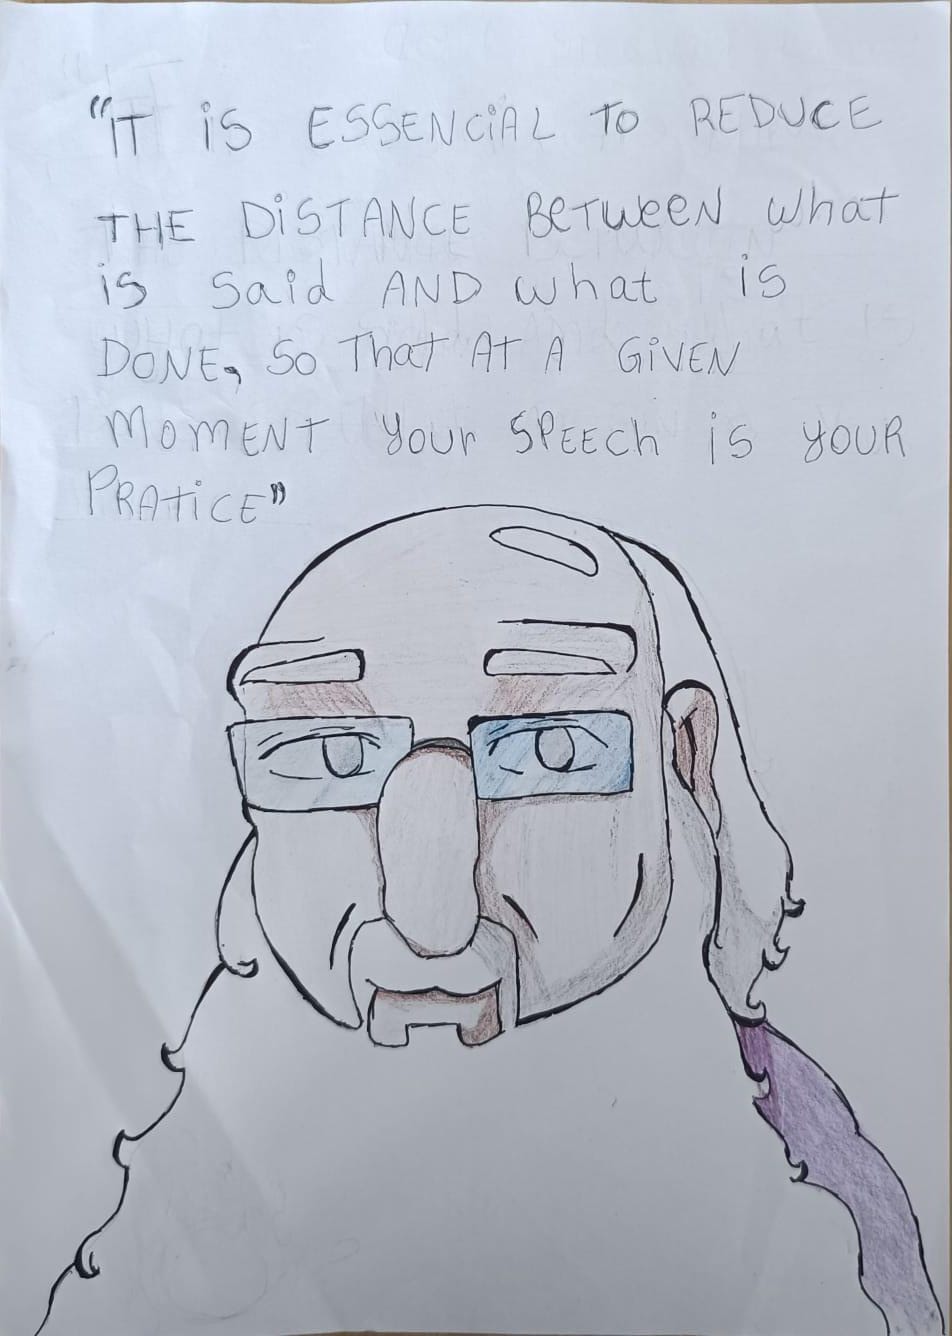 "IT iS ESSENCiAL TO REDUCE
THE DiSTANCE BeTWeeN what
iS Said AND what iS
DONE, So That AT A GiVEN
MOMENT Your SPEECh iS YOUR
PRATiCE"